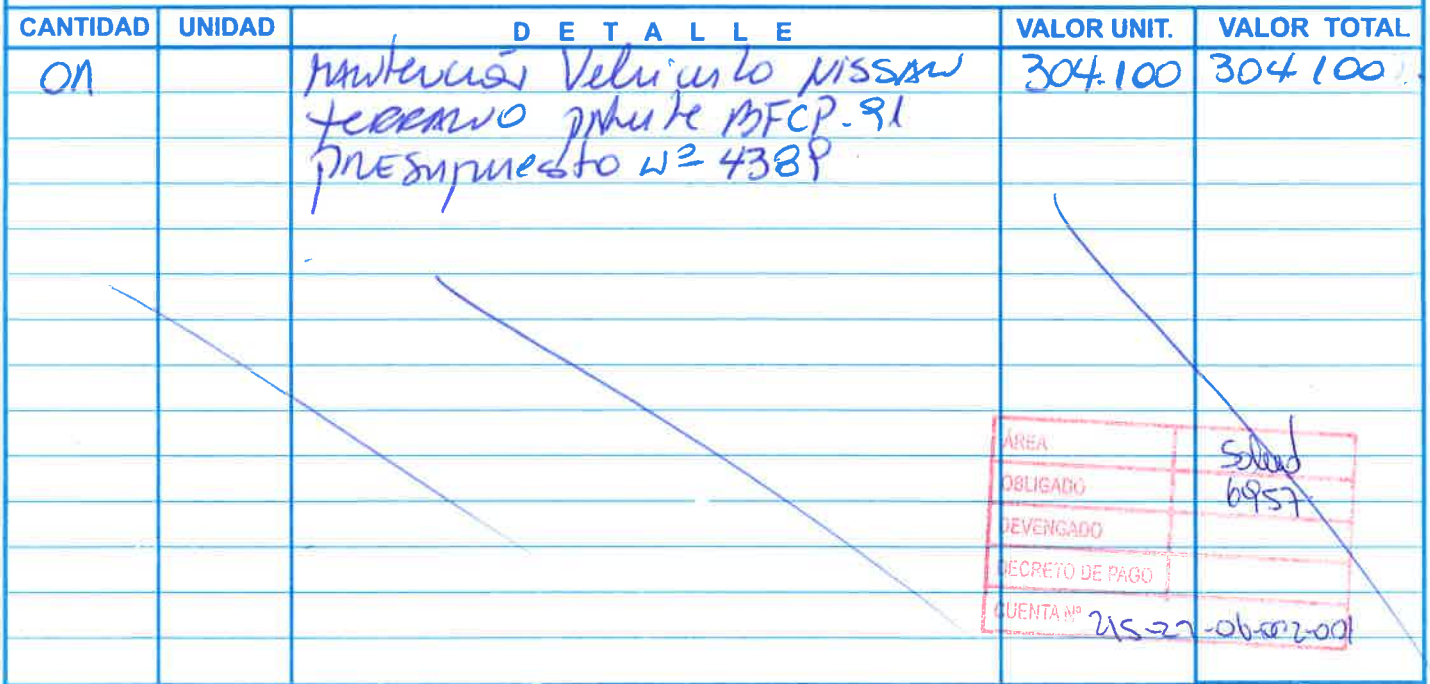 CANTIDAD UNIDAD DETALLE VALOR UNIT. VALOR TOTAL
01 Mantención Vehiculo NISSAN 304.100 304.100
TERRANO patente BFCP-91
presupuesto Nº 4389
ÁREA Salud
OBLIGADO 6957
DEVENGADO
DECRETO DE PAGO
CUENTA Nº 215-22-06-002-001